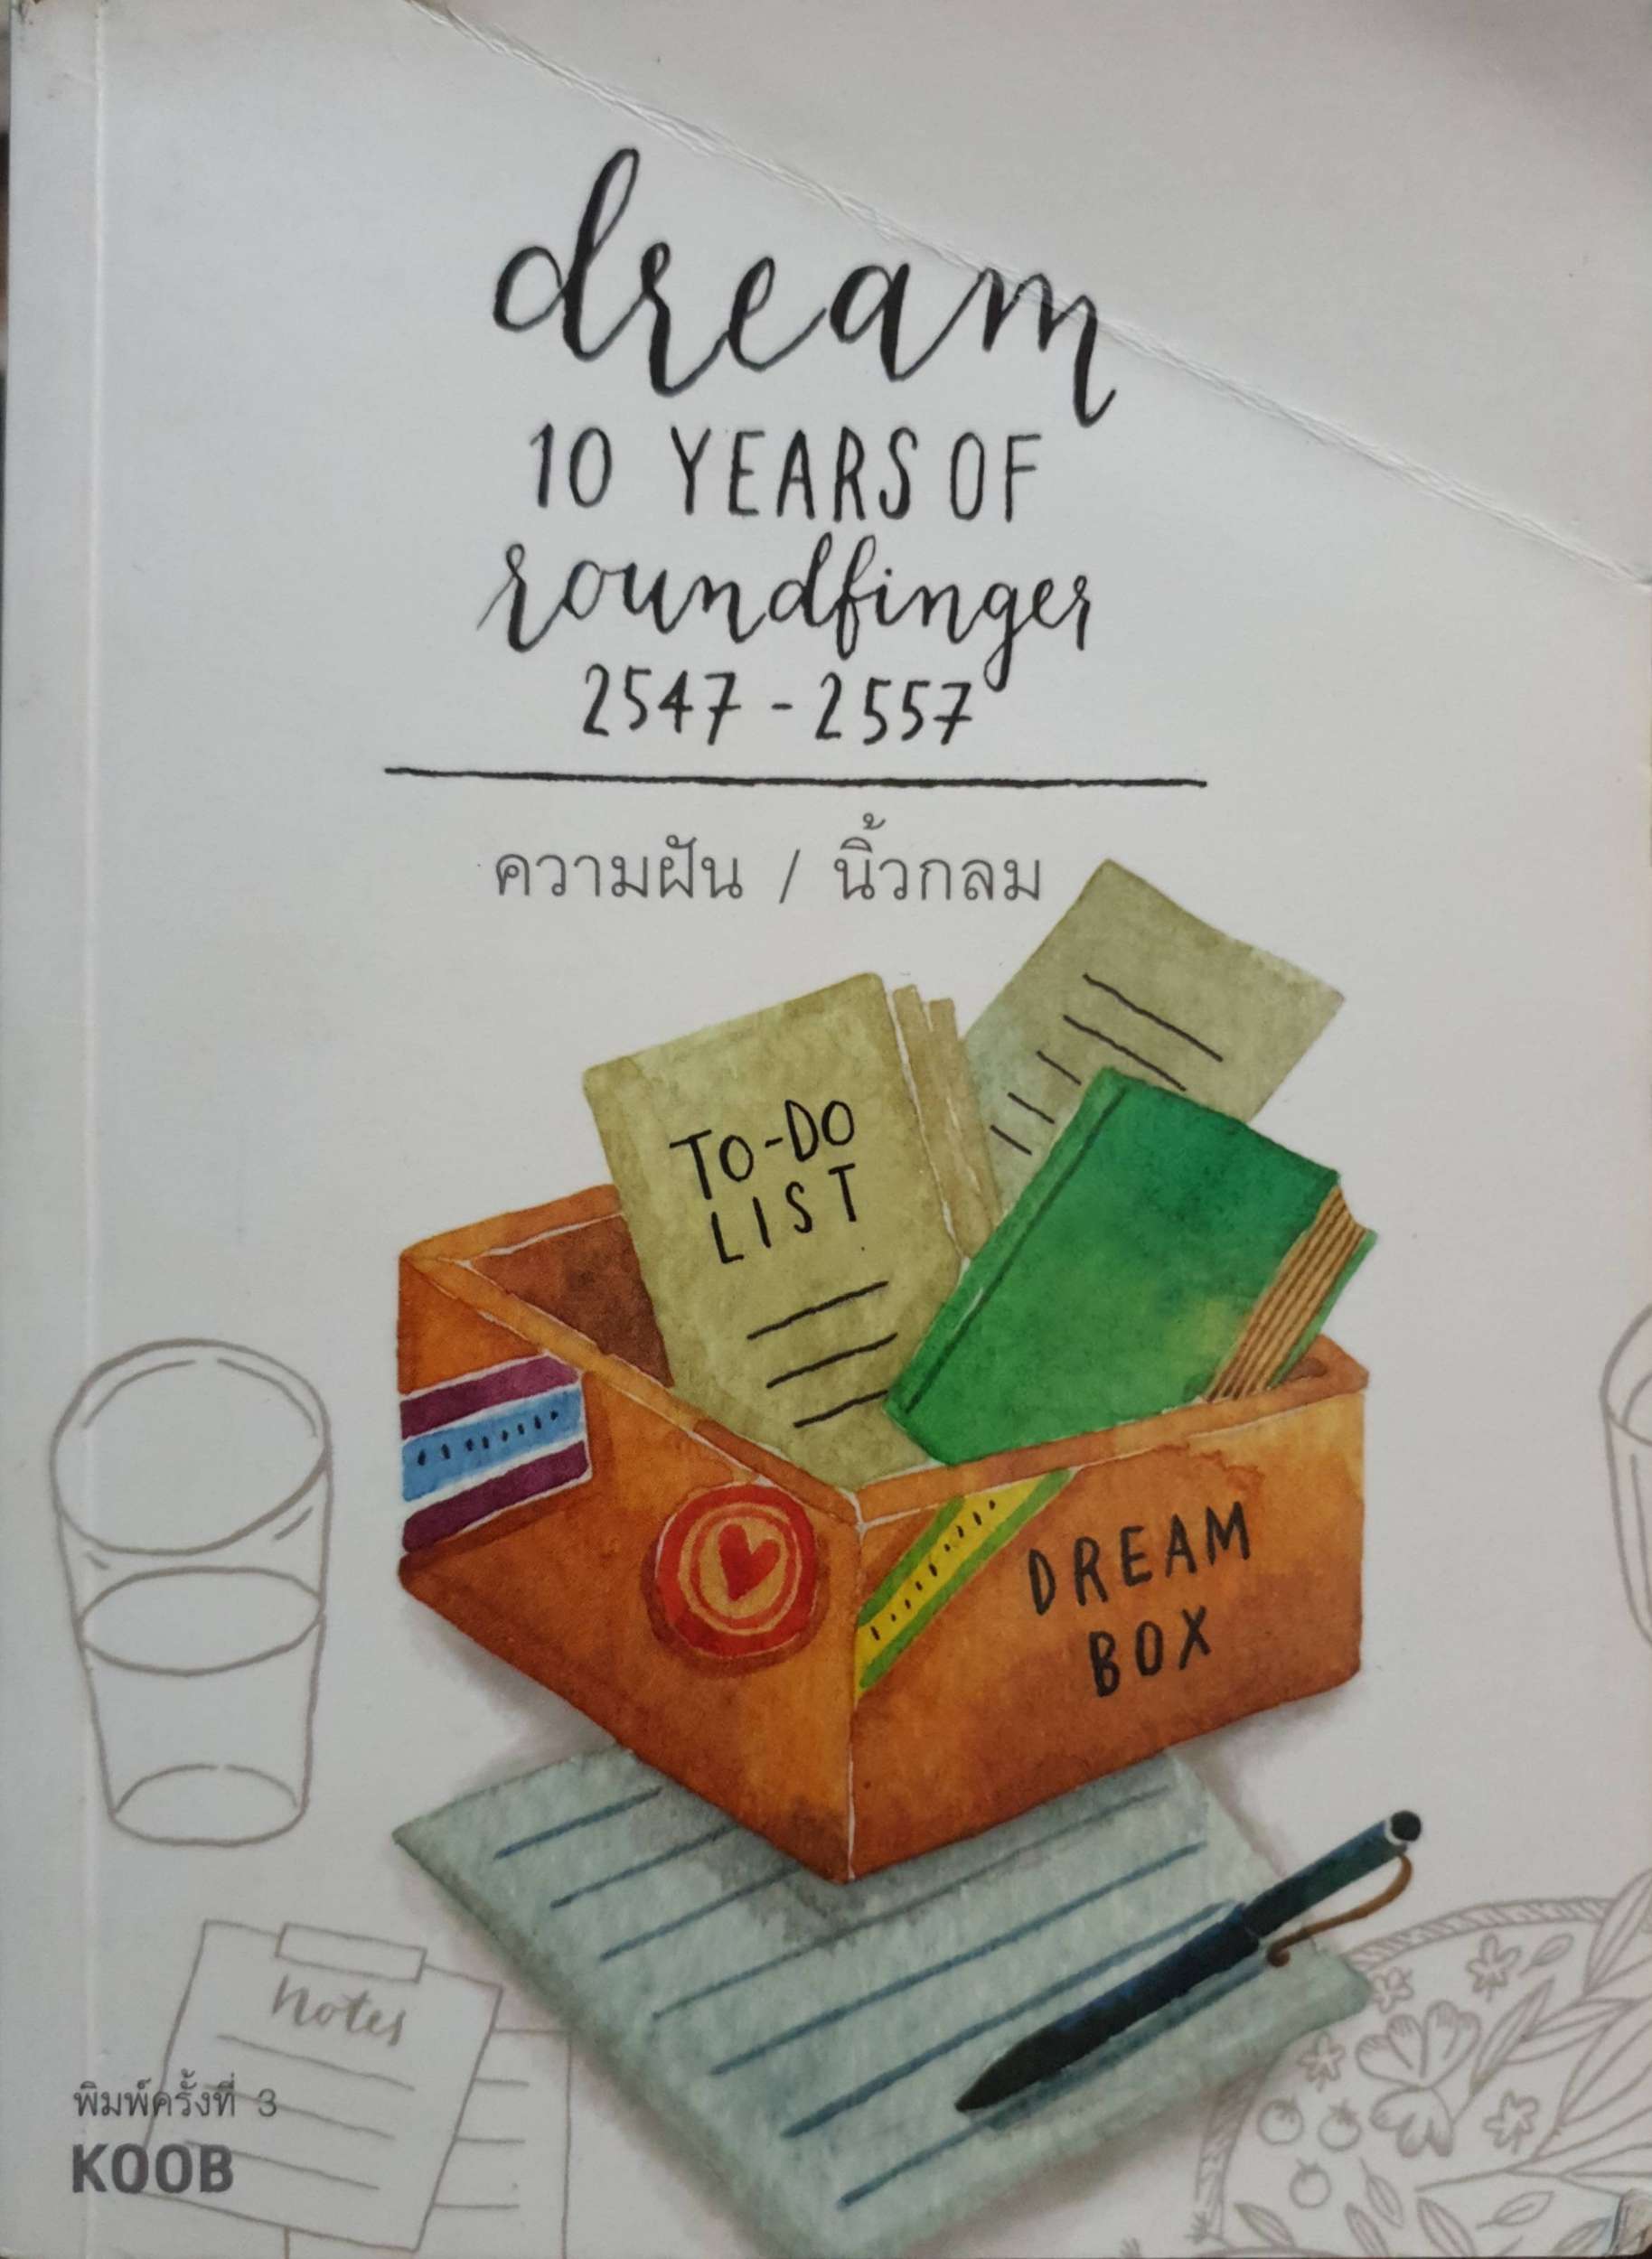 dream
10 YEARS OF
roundfinger
2547 - 2557
ความฝัน / นิ้วกลม
TO-DO
LIST
DREAM
BOX
notes
พิมพ์ครั้งที่ 3
KOOB